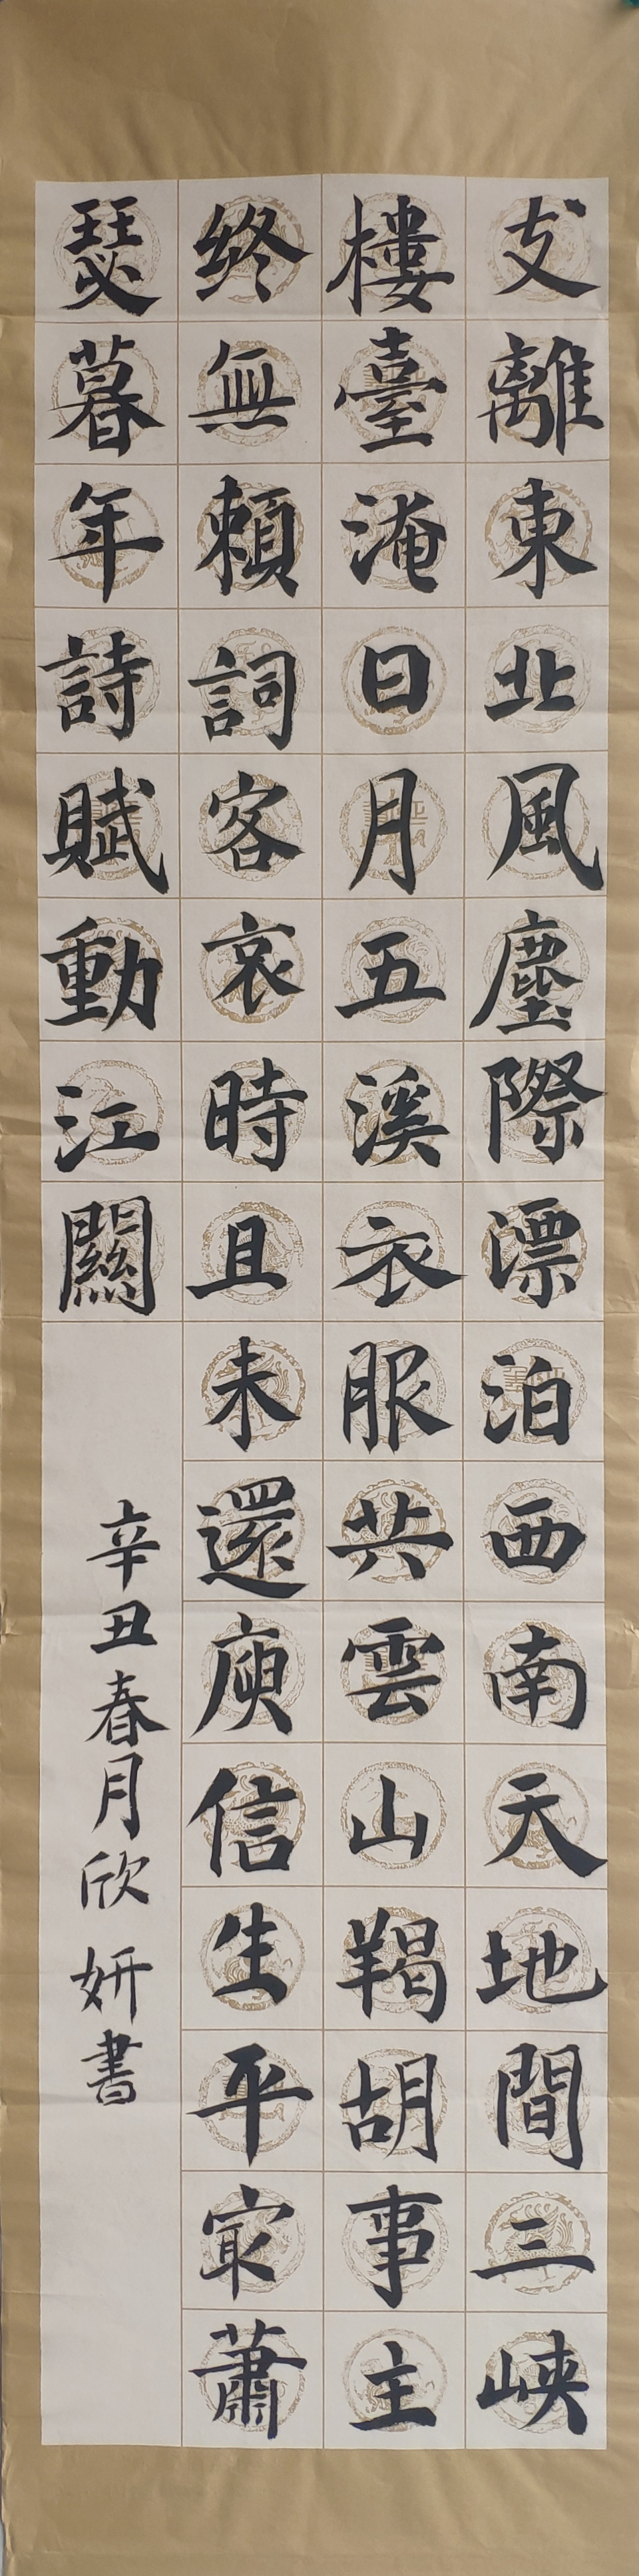 支離東北風塵際漂泊西南天地間三峽
樓臺淹日月五溪衣服共雲山羯胡事主
终無賴詞客哀時且未還庾信生平冣蕭
瑟暮年詩賦動江關
辛丑春月欣妍書